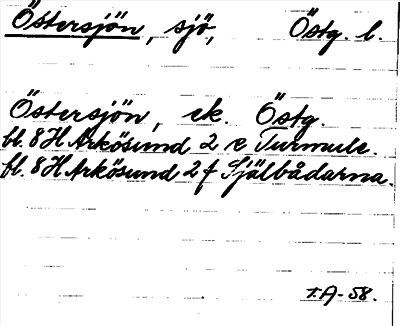 Östersjön, sjö, Östg. l.
Östersjön, ek. Östg.
bl. 8H Arkösund 2 e Turmule.
bl. 8H Arkösund 2 f Själbådarna.
T.A-58.